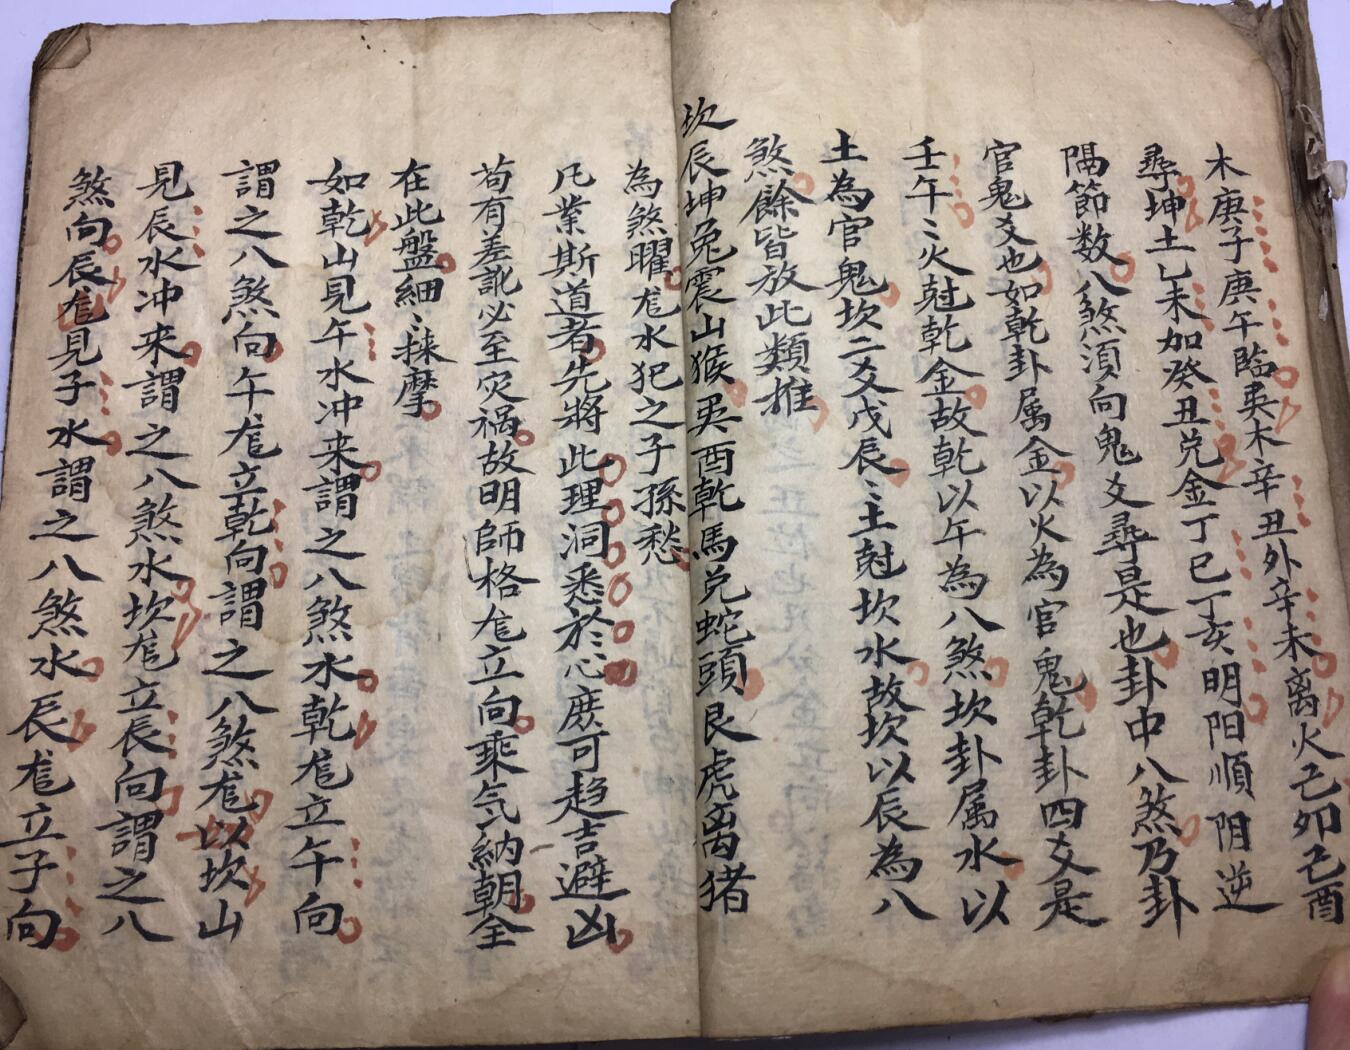 木庚子庚午臨巽木辛丑外辛未离火己卯己酉
尋坤土乙未加癸丑兌金丁巳丁亥明阳順阴逆
隔節数八煞須向鬼爻尋是也卦中八煞乃卦
官鬼爻也如乾卦属金以火為官鬼乾卦四爻是
壬午〻火尅乾金故乾以午為八煞坎卦属水以
土為官鬼坎二爻戊辰〻土尅坎水故坎以辰為八
煞餘皆放此類推
坎辰坤兔震山猴巽酉乾馬兌蛇頭艮虎离猪
為煞曜尨水犯之子孫愁
凡業斯道者先將此理洞悉於心庶可趋吉避凶
苟有差訛必至灾祸故明師格尨立向乘気納朝全
在此盤細〻揉摩
如乾山見午水冲来謂之八煞水乾尨立午向
謂之八煞向午尨立乾向謂之八煞尨以坎山
見辰水冲来謂之八煞水坎尨立辰向謂之八
煞向辰尨見子水謂之八煞水辰尨立子向